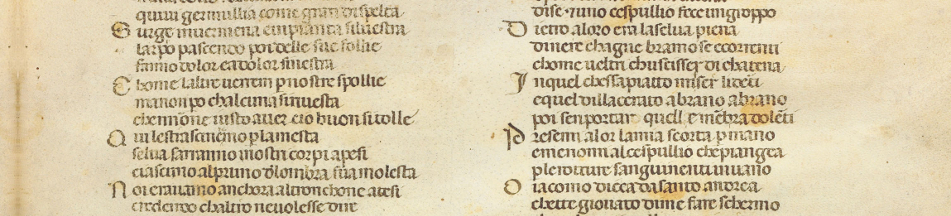 quiui germuglia come gran di spelta
Surge inuermena e in pianta siluestra
larpo pascendo poi delle sue follie
fanno dolor et a dolor finestra
Chome laltre uerrem per nostre spollie
ma non po chalcuna si riuesta
che non e iusto auer cio huon si tolle
Qui le strascineno per la mesta
selua saranno i nostri corpi apesi
ciascuno al pruno dlombra sua molesta
Noi erauamo anchora al tronchone atesi
credendo chaltro ne uolesse dire
disse 7 duno cespullio fece un groppo
Dietro a loro era la selua piena
di nere chagne bramose e correnti
chome ueltri chuscisser di chatena
In quel che sapiatto miser li denti
e quel dillacerato a brano a brano
poi sen portar quelle menbra dolenti
Presemi alor la mia scorta per mano
e menomi al cespullio che piangea
per le roiture sanguinenti in uano
O iacomo dicea da santo andrea
che te giouato di me fare schermo